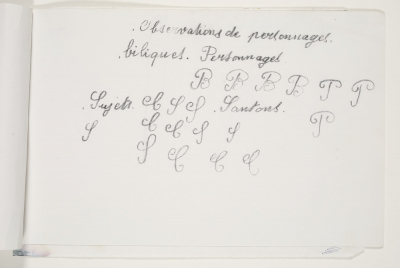 . Observations de personnages.
. bibliques. Personnages
B B B B P P
. Sujets. C S S . Santons. P
S C C S S
S C C C